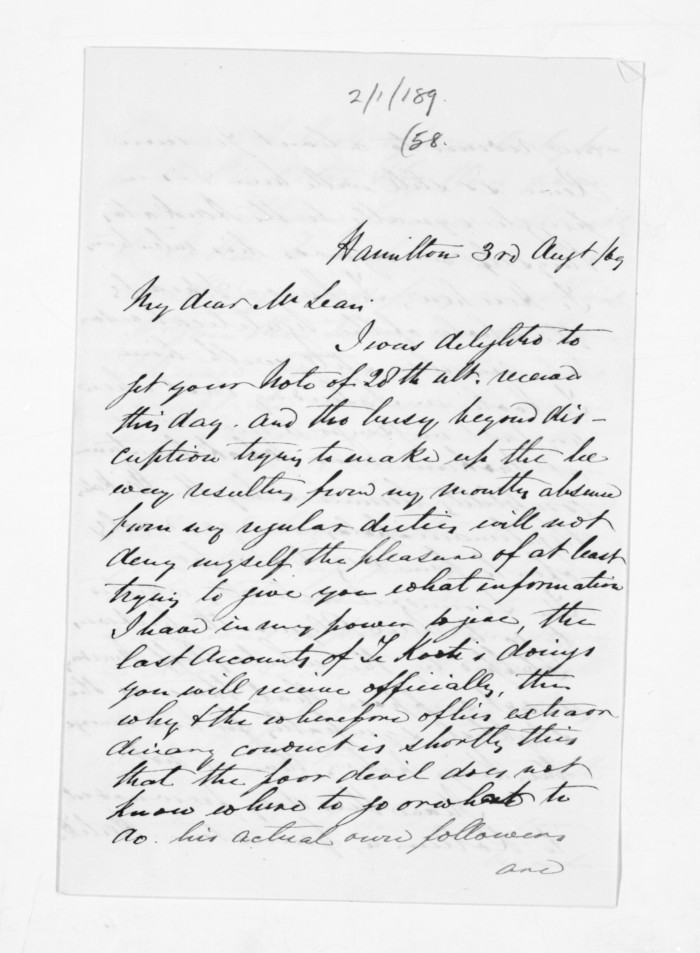 2/1/189.
(58.
Hamilton 3rd Augt /69
My dear McLean
I was delighted to
get your Note of 28th ult. received
this day. and tho busy beyond dis-
cuption trying to make up the lee
way resulting from my months absence
from my regular duties will not
deny myself the pleasure of at least
trying to give you what information
I have in my power to give, the
last Accounts of Te Kooti's doings
you will receive officially, the
why & the wherefore of his extraor
dinary conduct is shortly this
that the poor devil does not
know where to go or what to
do. his actual own followers
are